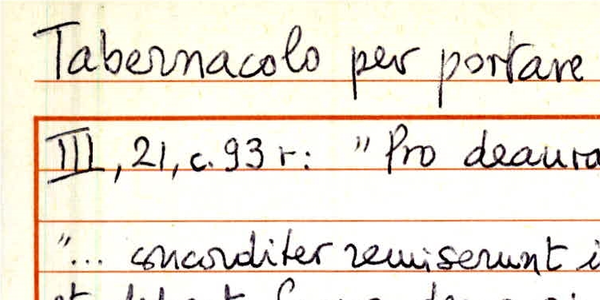 Tabernacolo per portare
III, 21, c. 93 r: "Pro deaura
"... concorditer remiserunt i